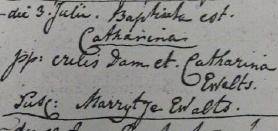 die 3. Julii. Baptisata est.
Catharina
pp: Dam et. Catharina
Ewalts.
Susc: Marrytje Ewalts.